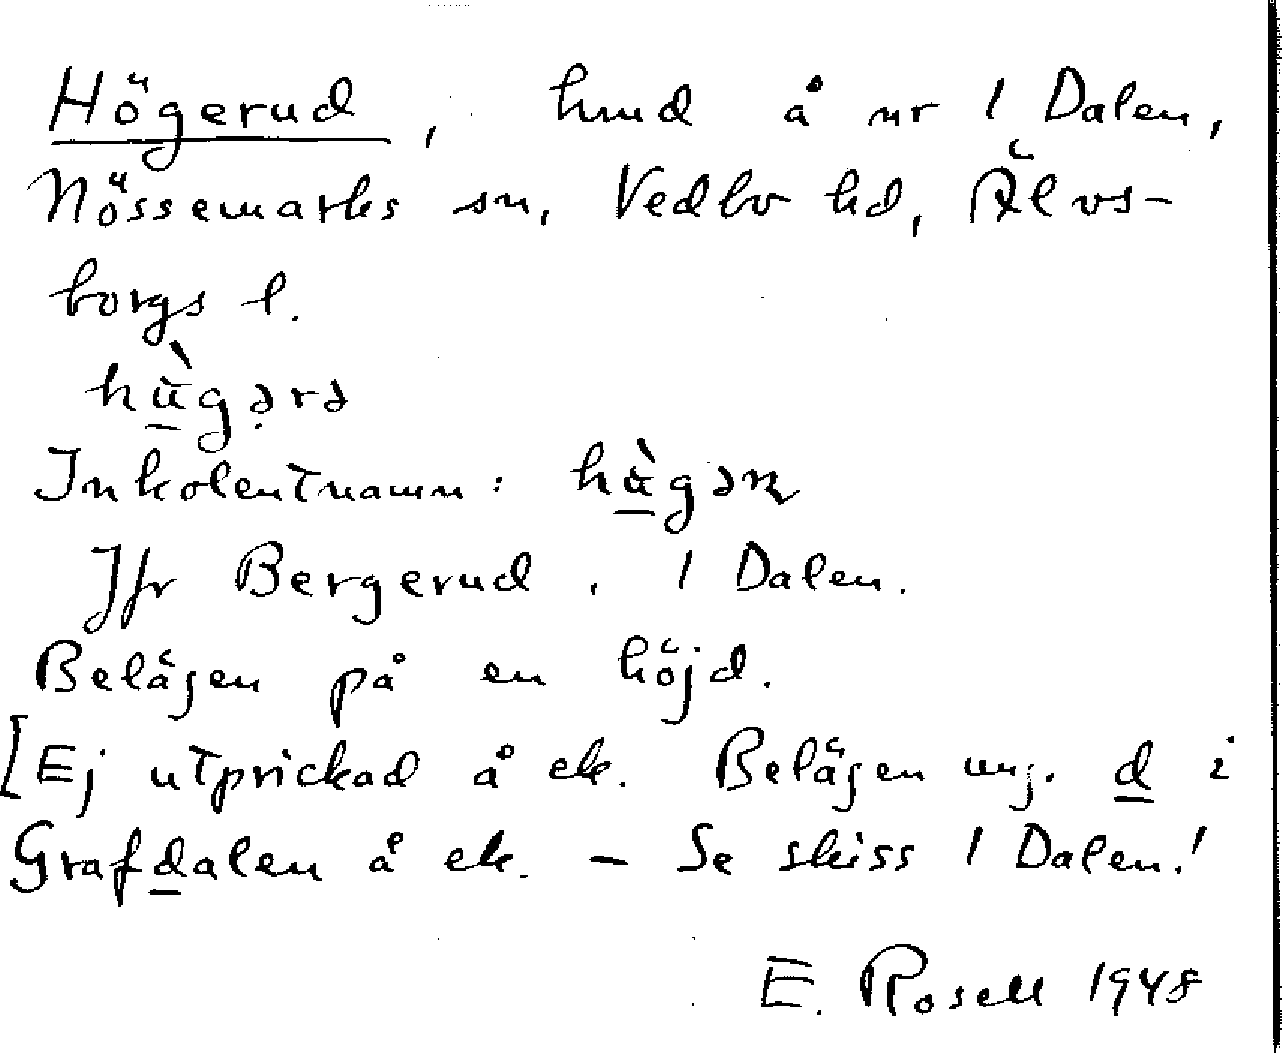 Högerud, hmd å nr 1 Dalen,
Nössemarks sn, Vedbo hd, Älvs-
borgs l.
hɑ̀̈gərə
Inkolentnamn: hɑ̀̈gəɳ
Jfr Bergerud, 1 Dalen.
Belägen på en höjd.
[Ej utprickad å ek. Belägen ung. d i
Grafdalen å ek. – Se skiss 1 Dalen!
E. Rosell 1948